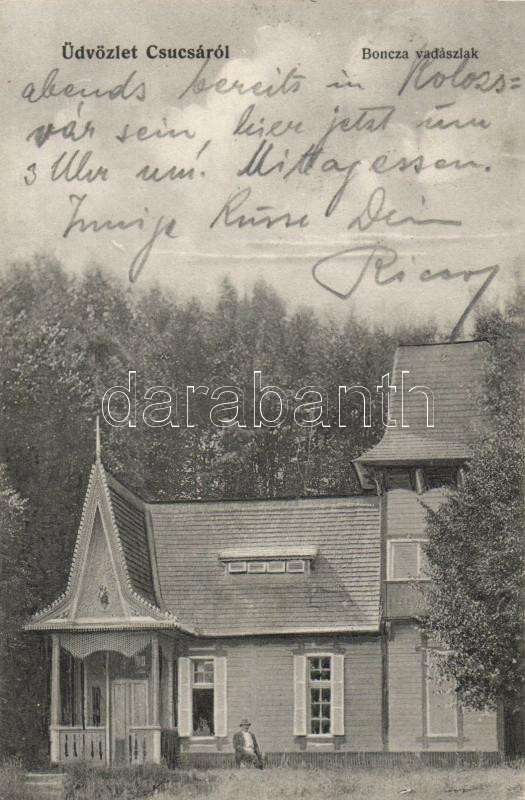 Üdvözlet Csucsáról
Boncza vadászlak
abends bereits in Kolozs=
vár sein, hier jetzt um
3 Uhr um. Mittagessen.
Innige Küsse Dein
darabanth